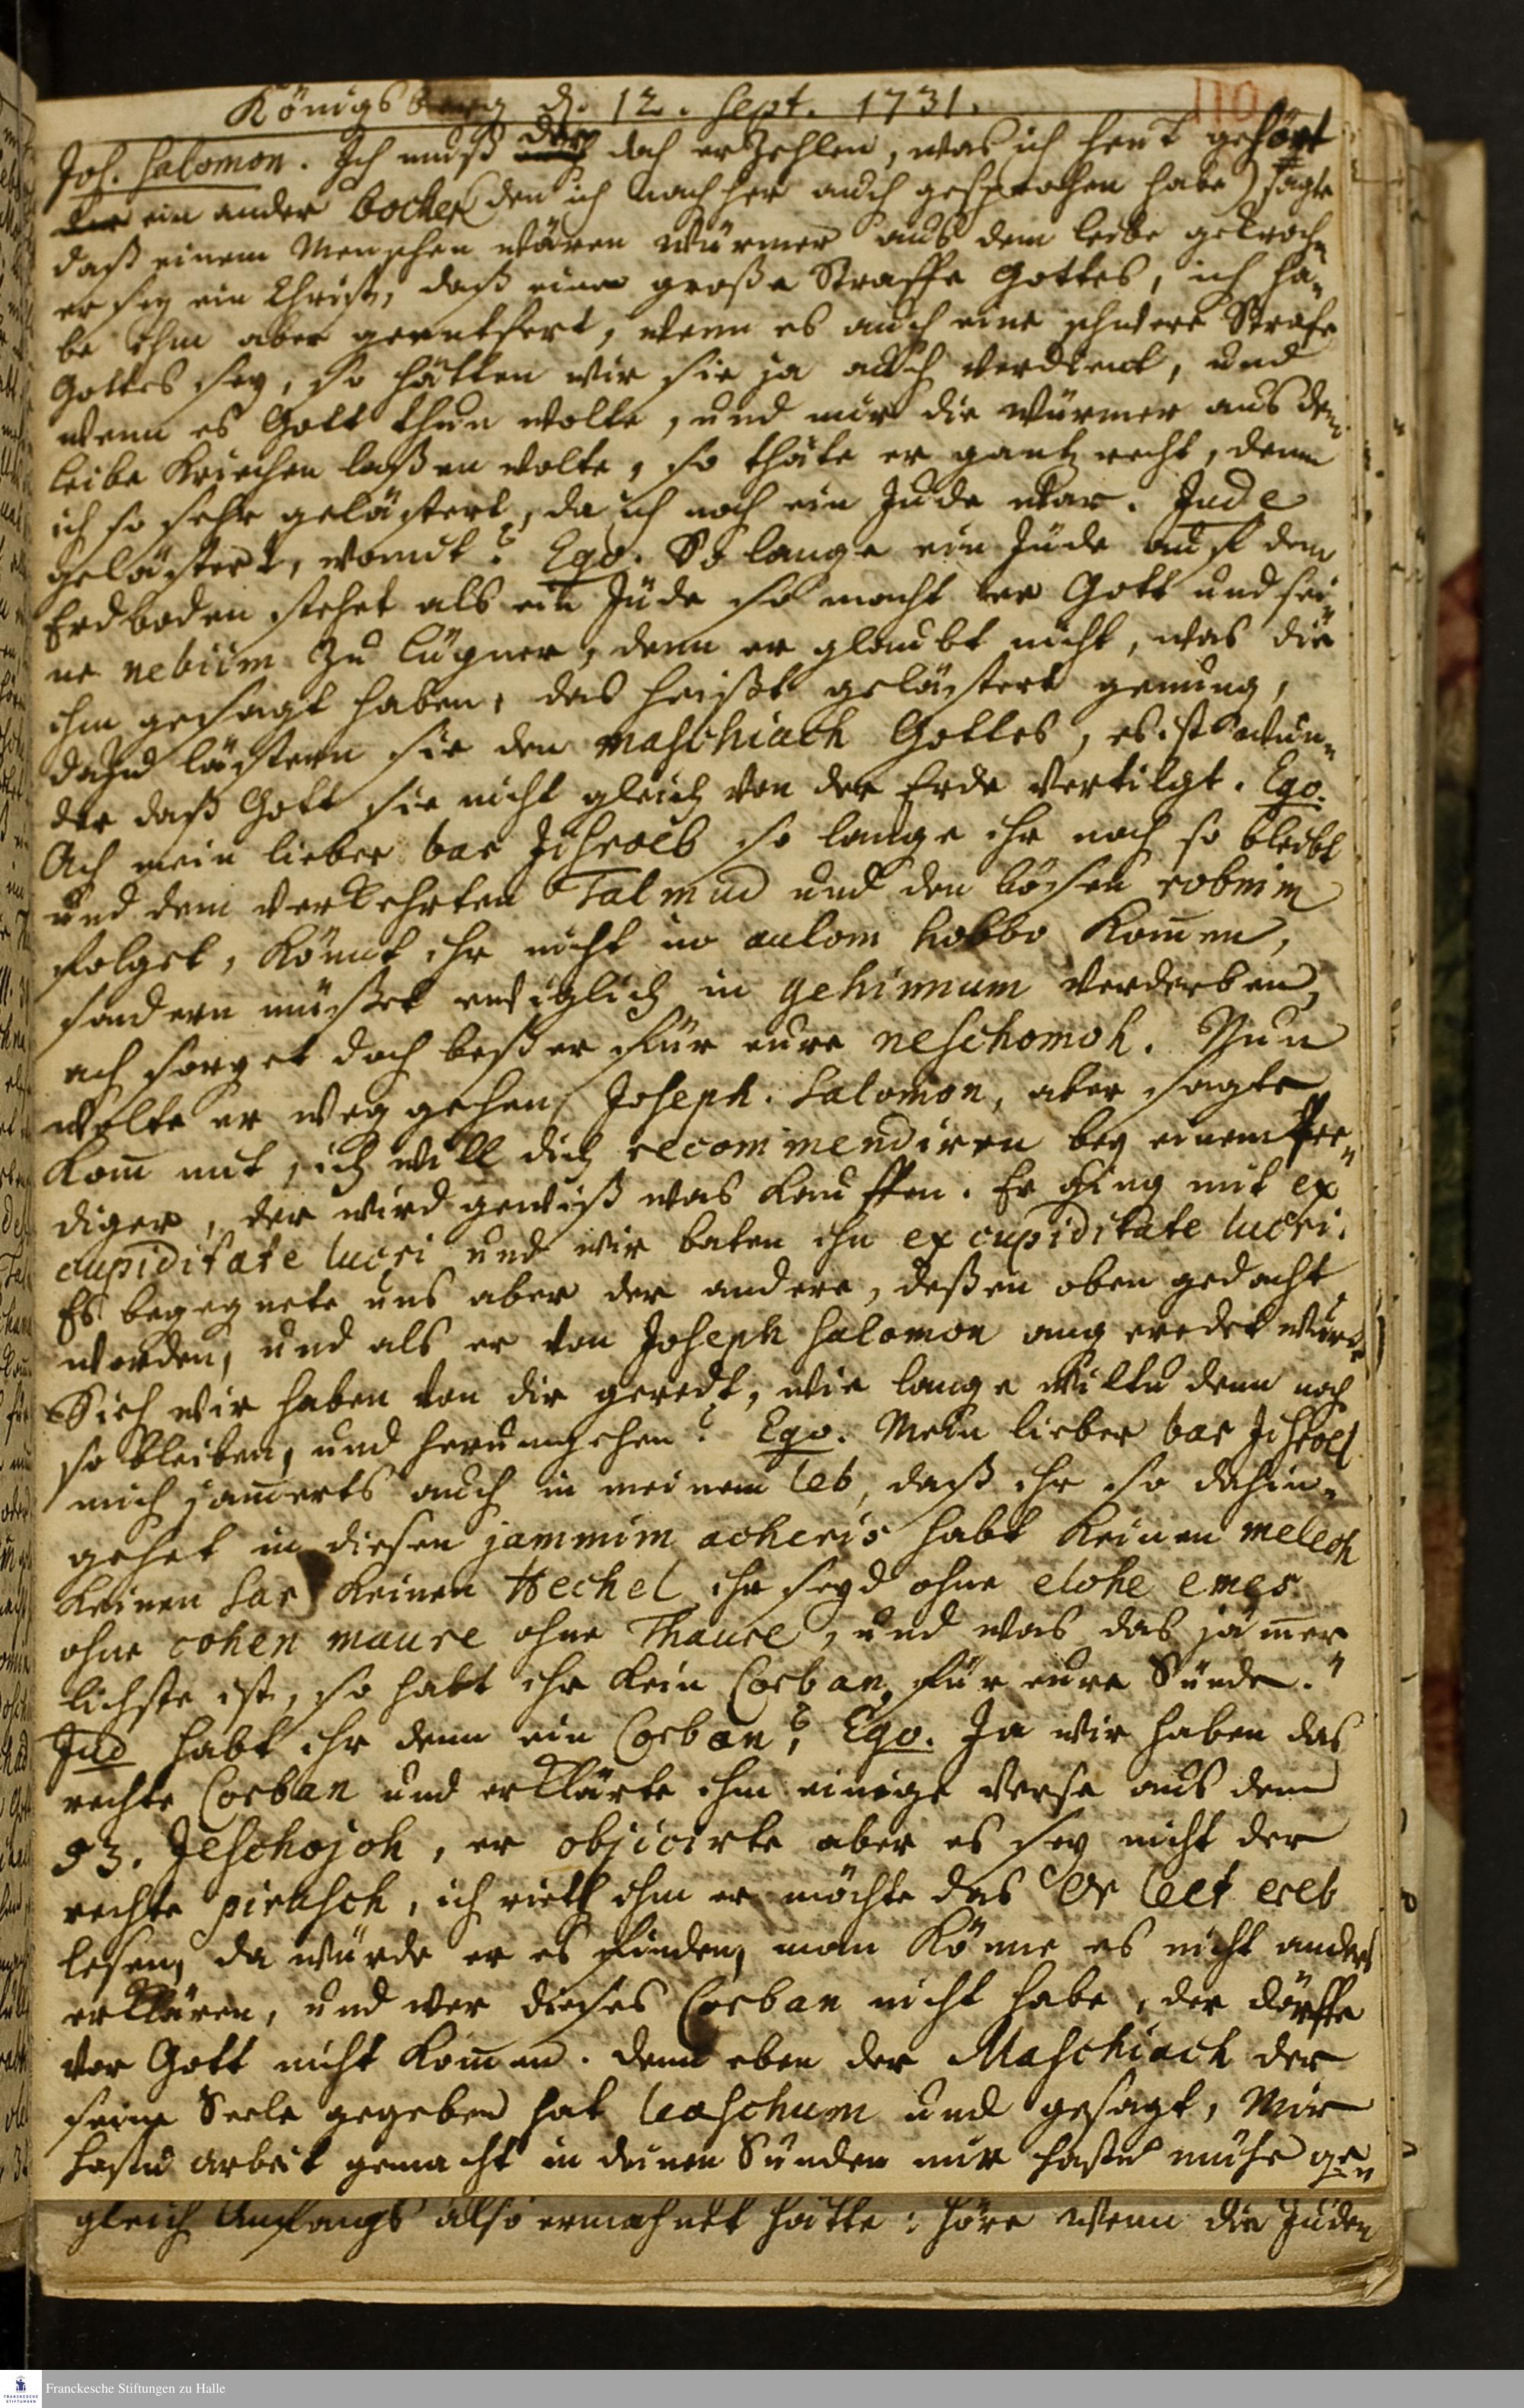 Königsberg d. 12. Sept. 1731.
110
Jos. Salomon. Ich muß doch erzehlen, was ich heut gehört
ein ander bocher (den ich nachher auch gesprochen habe) sagte
daß einem Menschen wären Würmer aus dem Leibe gekroch-
er sey ein Christ, daß eine große Straffe Gottes, ich ha-
be ihm aber geantwort, wenn es auch eine schwere Strafe
Gottes sey, so hätten wir sie ja auch verdient, und
wenn es Gott thun wolte, und mir die Würmer aus dem
Leibe kriechen laßen wolte, so thäte er gantz recht, denn
ich so sehr gelästert, da ich noch ein Jude war. Jude
gelästert, womit? Ego. So lange ein Jude auf dem
Erdboden stehet als ein Jude so macht er Gott und sei-
ne nebiim zu Lügner, denn er glaubt nicht, was die
ihm gesagt haben, das heißt gelästert genung,
dazu lästern sie den Maschiach Gottes, es ist Wun-
der daß Gott sie nicht gleich von der Erde vertilgt. Ego.
Ach mein lieber bar Jisroel so lange ihr noch so bleibt
und dem verkehrten Talmud und den bösen robnim
folget, könnt ihr nicht in aulom habbo kom̄en,
sondern müßet ewiglich in gehinnum verderben,
ach sorget doch beßer für eure neschomoh. Nun
wolte er weg gehen Joseph. Salomon, aber sagte
kom̄ mit, ich will dich recommendiren bey einem Pre-
diger, der wird gewiß was kauffen. Er ging mit ex
cupiditate lucri und wir baten ihn ex cupiditate lucri.
Es begegnete uns aber der andere, deßen oben gedacht
worden, und als er von Joseph Salomon angeredet wurde
Sieh wir haben von dir geredt, wie lange wiltu denn noch
so bleiben, und herumgehen? Ego. Mein lieber bar Jisroel
mich jam̄erts auch in meinem leb, daß ihr so dahin-
gehet in diesen jammim acheris habt keinen melech
keinen Sar keinen Hechel ihr seyd ohne elohe emes
ohne cohen maure ohne Thaure, und was das jäm̄er
lichste ist, so habt ihr kein Corban für eure Sünde.
Jud habt ihr denn ein Corban? Ego. Ja wir haben das
rechte Corban und erklärte ihm einige Verse aus dem
53. Jeschojoh, er objicirte aber es sey nicht der
rechte pirusch, ich rieth ihm er möchte das Or leet ereb
lesen, da würde er es finden, man könne es nicht anders
erklären, und wer dieses Corban nicht habe, der dörffte
vor Gott nicht kom̄en. Denn eben der Maschiach der
seine Seele gegeben hat leaschum und gesagt, Mir
hastu arbeit gemacht in deinen Sünden mir hastu mühe ge-
gleich Anfangs also ermahnet hätte: höre wenn die Juden
Franckesche Stiftungen zu Halle